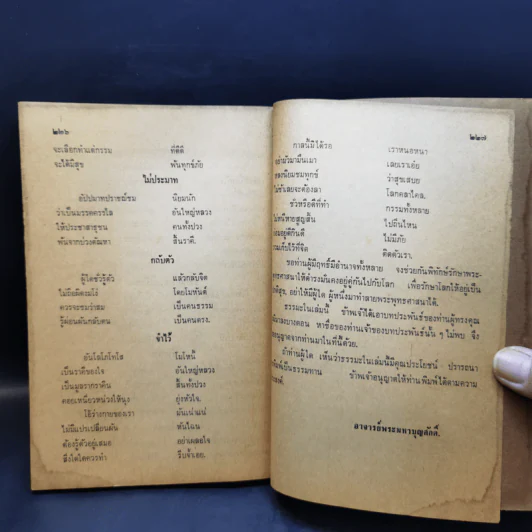 ๒๒๖
จะเลือกทำแต่กรรม ที่ดีดี
จะได้มีสุข พ้นทุกข์ภัย
ไม่ประมาท
อัปปมาทประชาชม นิยมนัก
ว่าเป็นมรรคควรใส อันใหญ่หลวง
ให้ประชาสาธุชน คนทั้งปวง
พ้นจากบ่วงตัณหา สิ้นราคี.
กลับตัว
ผู้ใดชั่วรู้ตัว แล้วกลับจิต
โดยโมหันต์
ควรจะชมว่าสม เป็นคนธรรม
รู้ผ่อนผันกลับตน เป็นคนตรง.
จำไว้
อันโลโภโทโส โมโหนี้
เป็นราคีของใจ อันใหญ่หลวง
เป็นมูลรากราคิน สิ้นทั้งปวง
คอยเหนี่ยวหน่วงให้นุง ยุ่งหัวใจ.
โอ้ร่างกายของเรา มันเน่าแน่
ไม่มีแปรเปลี่ยนผัน หันไฉน
ต้องรู้ตัวอยู่เสมอ อย่าเผลอใจ
สิ่งใดใดควรทำ รีบจำเอย.
๒๒๗
กาลนี้มิได้รอ เราหนอหนา
อย่ามัวมามึนเมา เลยเราเอ๋ย
หลงนิยมชมทุกข์ ว่าสุขเสบย
โลกคลาไคล.
ชั่วหรือดีที่ทำ กรรมทั้งหลาย
ไม่หนีหายสูญสิ้น ไปถิ่นไหน
ไม่มีภัย
ติดตัวเรา.
ขอท่านผู้มีฤทธิ์มีอำนาจทั้งหลาย จงช่วยกันพิทักษ์รักษาพระ-
ศาสนาให้ดำรงมั่นคงอยู่คู่กันไปกับโลก เพื่อรักษาโลกให้อยู่เป็น
สุข, อย่าให้มีผู้ใด ผู้หนึ่งมาทำลายพระพุทธศาสนาได้.
ธรรมะในเล่มนี้ ข้าพเจ้าได้เอาบทประพันธ์ของท่านผู้ทรงคุณ
มาลงบางตอน หาชื่อของท่านเจ้าของบทประพันธ์นั้น ๆ ไม่พบ จึง
อนุญาตจากท่านมาในที่นี้ด้วย.
ถ้าท่านผู้ใด เห็นว่าธรรมะในเล่มนี้มีคุณประโยชน์ ปรารถนา
พิมพ์เป็นธรรมทาน ข้าพเจ้าอนุญาตให้ท่านพิมพ์ได้ตามความ
อาจารย์พระมหาบุญศักดิ์.